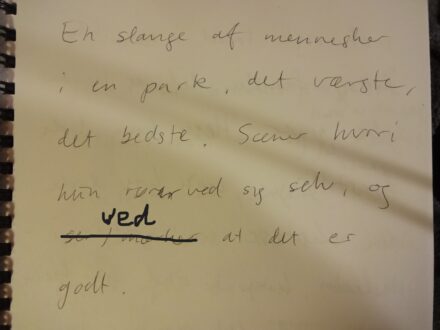 En slange af mennesker
i en park, det værste,
det bedste. Scener hvori
hun rører ved sig selv, og
ved
at det er
godt.